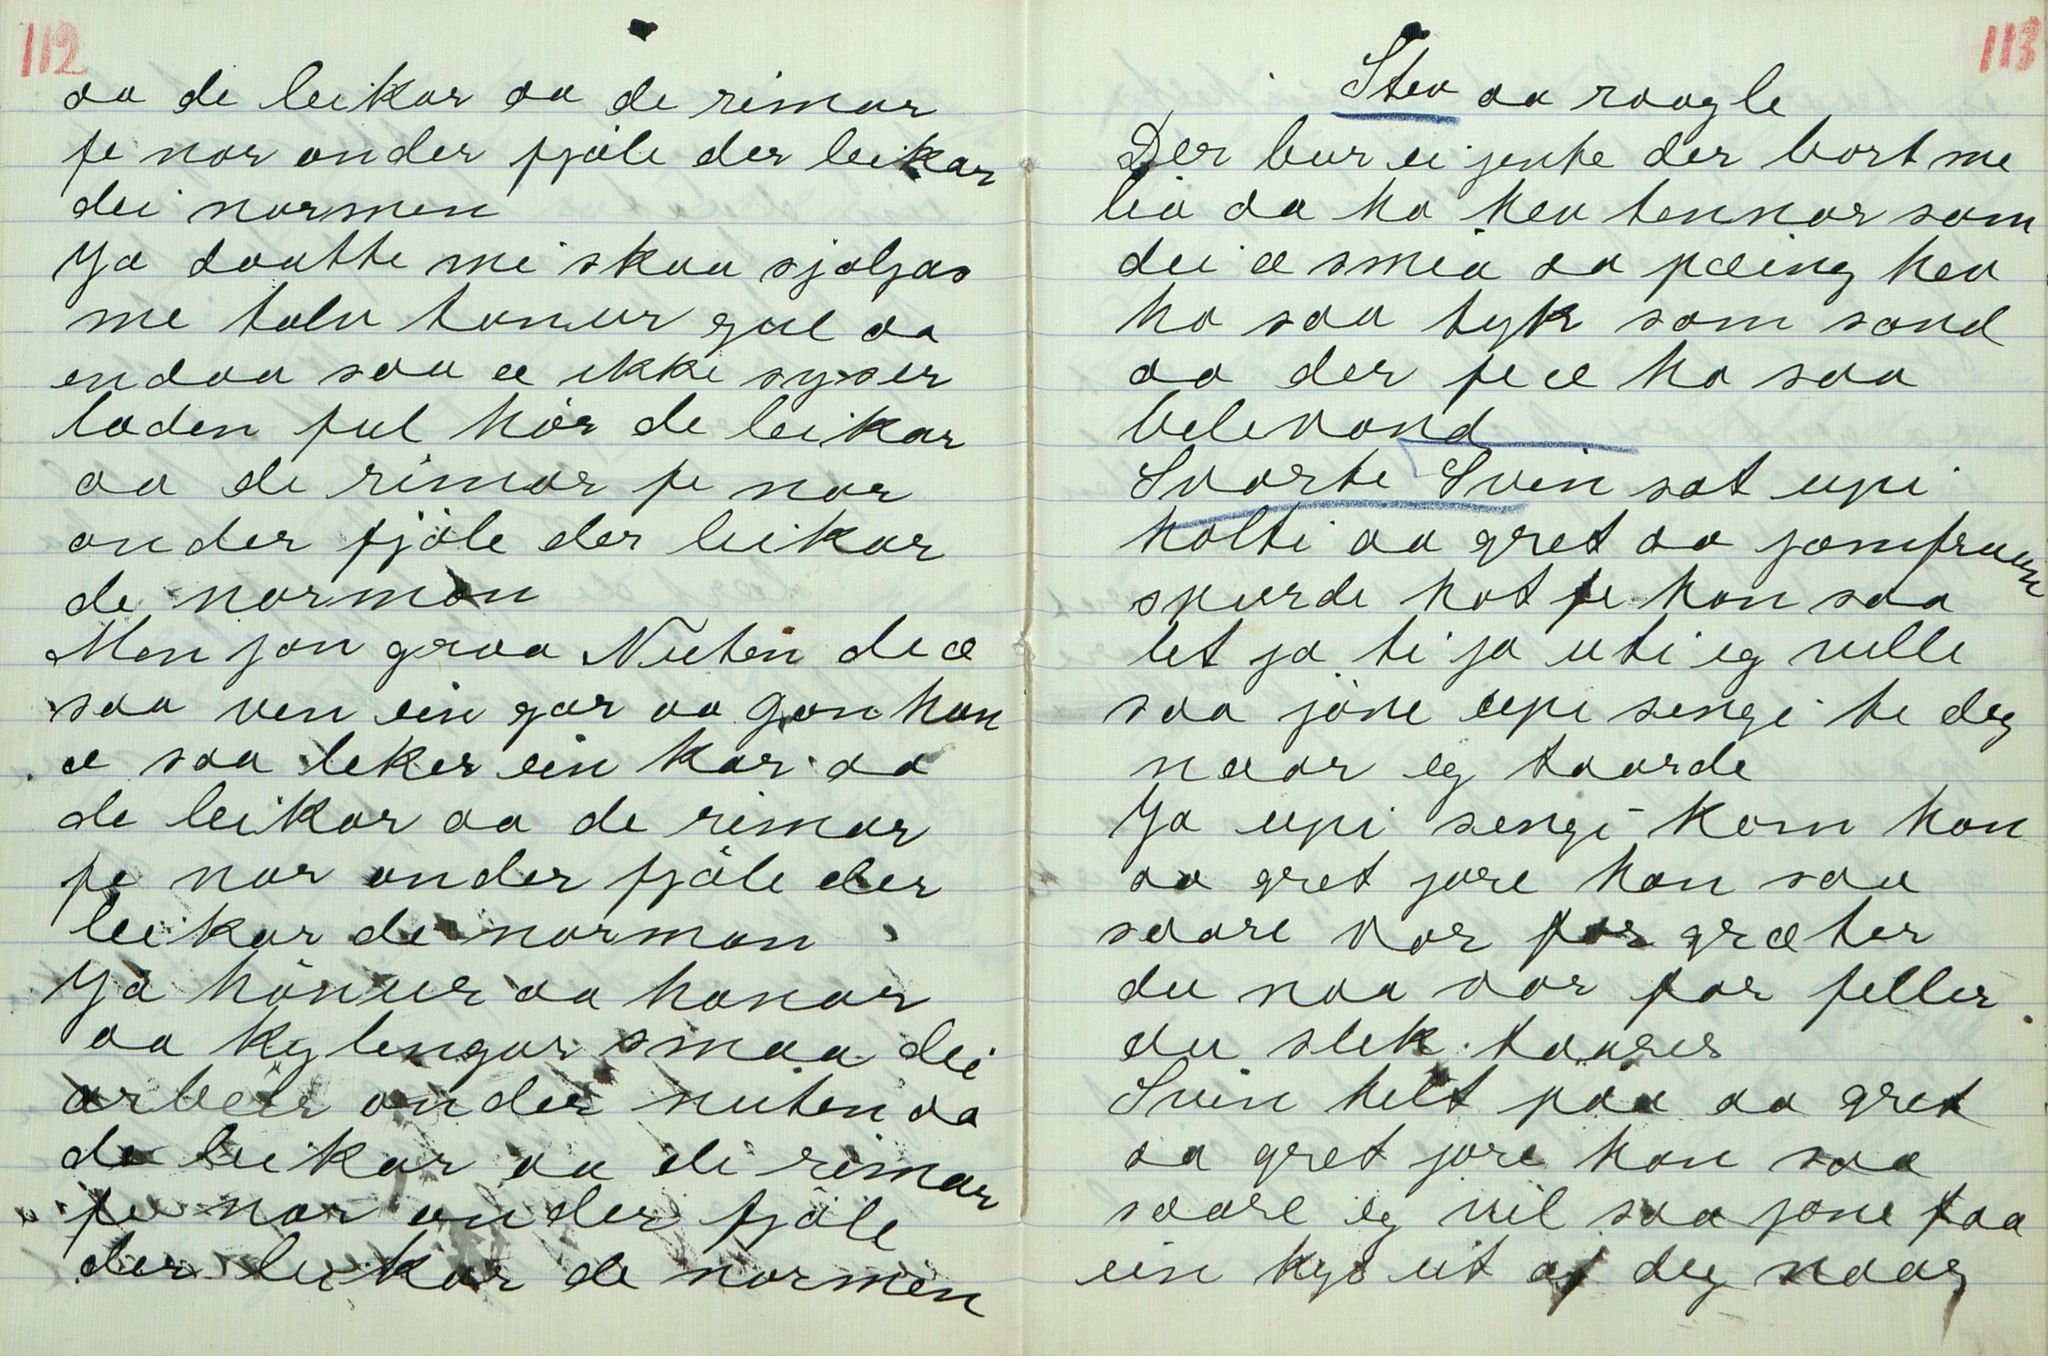 112
aa de leikar aa de rimar
fe nor onder fjøle der leikar
dei normen
Ja daatte mi skaa sjølgas
me tolv tonur gul aa
endaa saa æ ikki syser
laden ful hør de leikar
aa de rimar fe nor
onder fjøle der leikar
de normon
Men jon graa Nuten de æ
saa ven ein gar aa Gon han
æ saa leker ein kar aa
de leikar aa de rimar
fe nor onder fjøle der
leikar de normon
Ja hønur aa hanar
aa kylengar smaa dei
arbeir onder nuten aa
de leikar aa de rimar
fe nor onder fjøle
der leikar de normen
113
Stev aa raagle
Der bur ei jente der bort me
lio aa ho hev tennar som
dei æ smia aa pæing hev
ho saa tyk som sand
aa der fe æ ho saa
belevand
Svarte Svein sat upi
holti aa gret aa jomfruen
spurde hot fe han saa
let ja ti ja uti eg ville
saa jøne upi sengi te deg
naar eg taarde
Ja upi sengi kom han
aa gret jore han saa
saare vor for græter
du naa vor for feller
du slik taarer
Svein helt paa aa gret
aa gret jore han saa
saare eg vil saa jøne faa
ein kys ut af deg naar